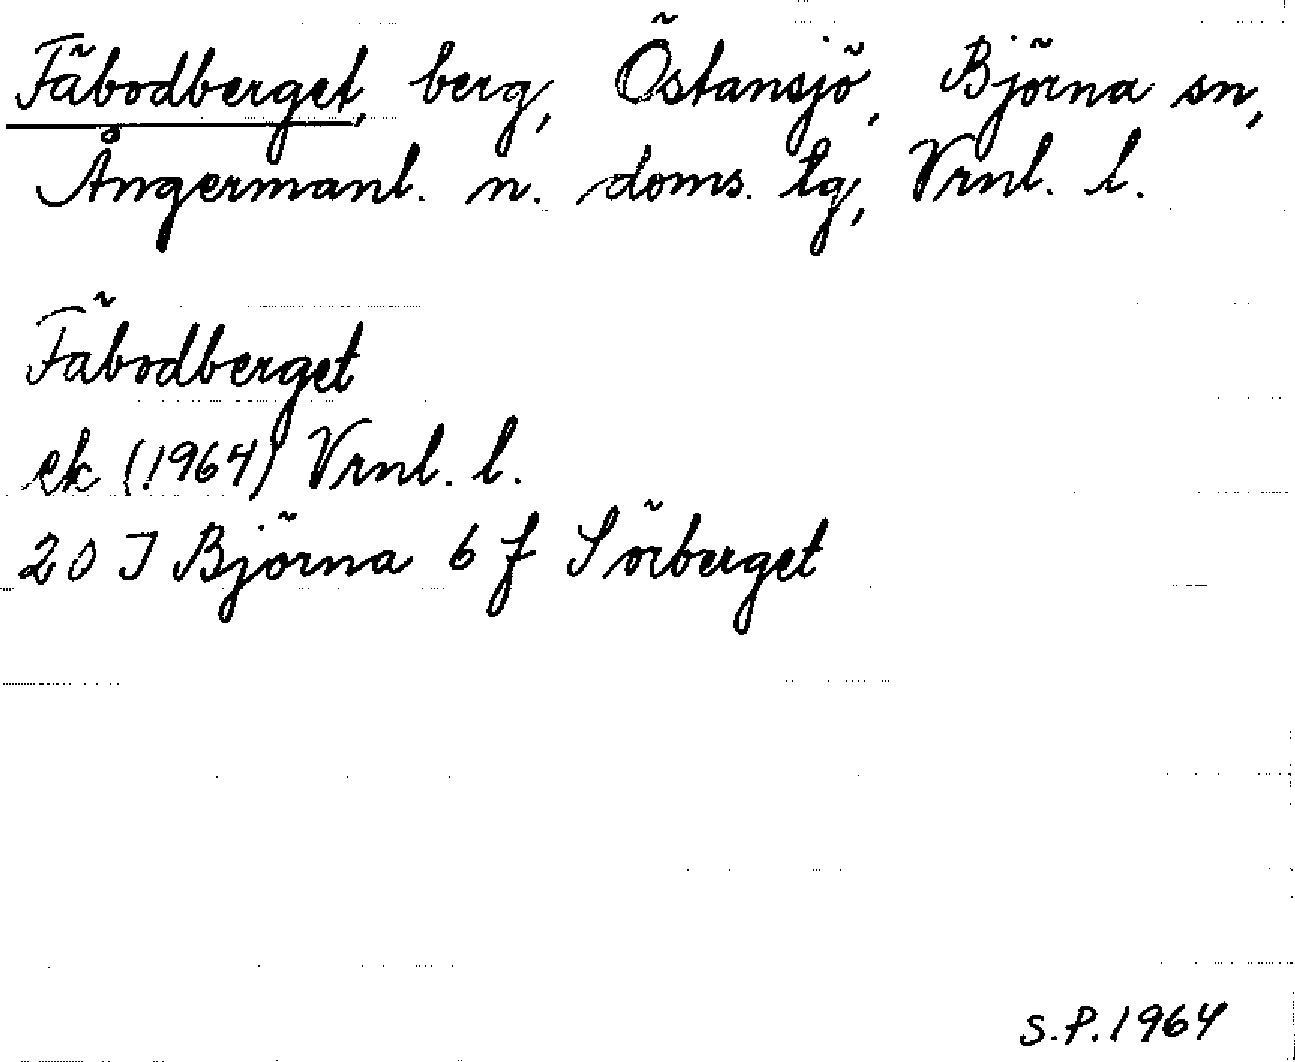 Fäbodberget, berg, Östansjö, Björna sn,
Ångermanl. n. doms. lg, Vrnl. l.
Fäbodberget
ek (1964) Vrnl. l.
20 J Björna 6 f Sörberget
S.P. 1964